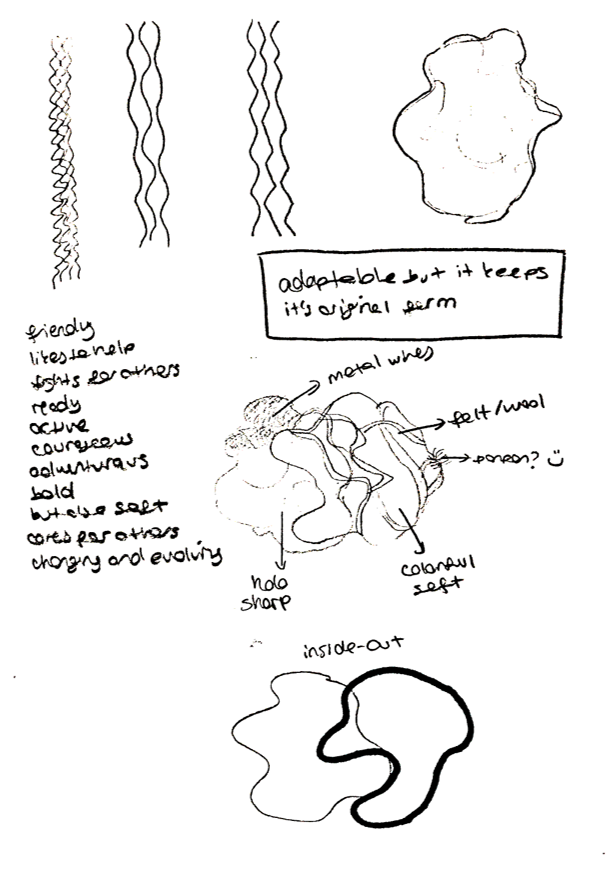 adaptable but it keeps
it's original form
friendly
likes to help
fights for others
ready
active
courageous
adventurous
bold
but also soft
cares for others
changing and evolving
metal wires
felt/wool
ponpon? :)
holo
sharp
colorful
soft
inside-out